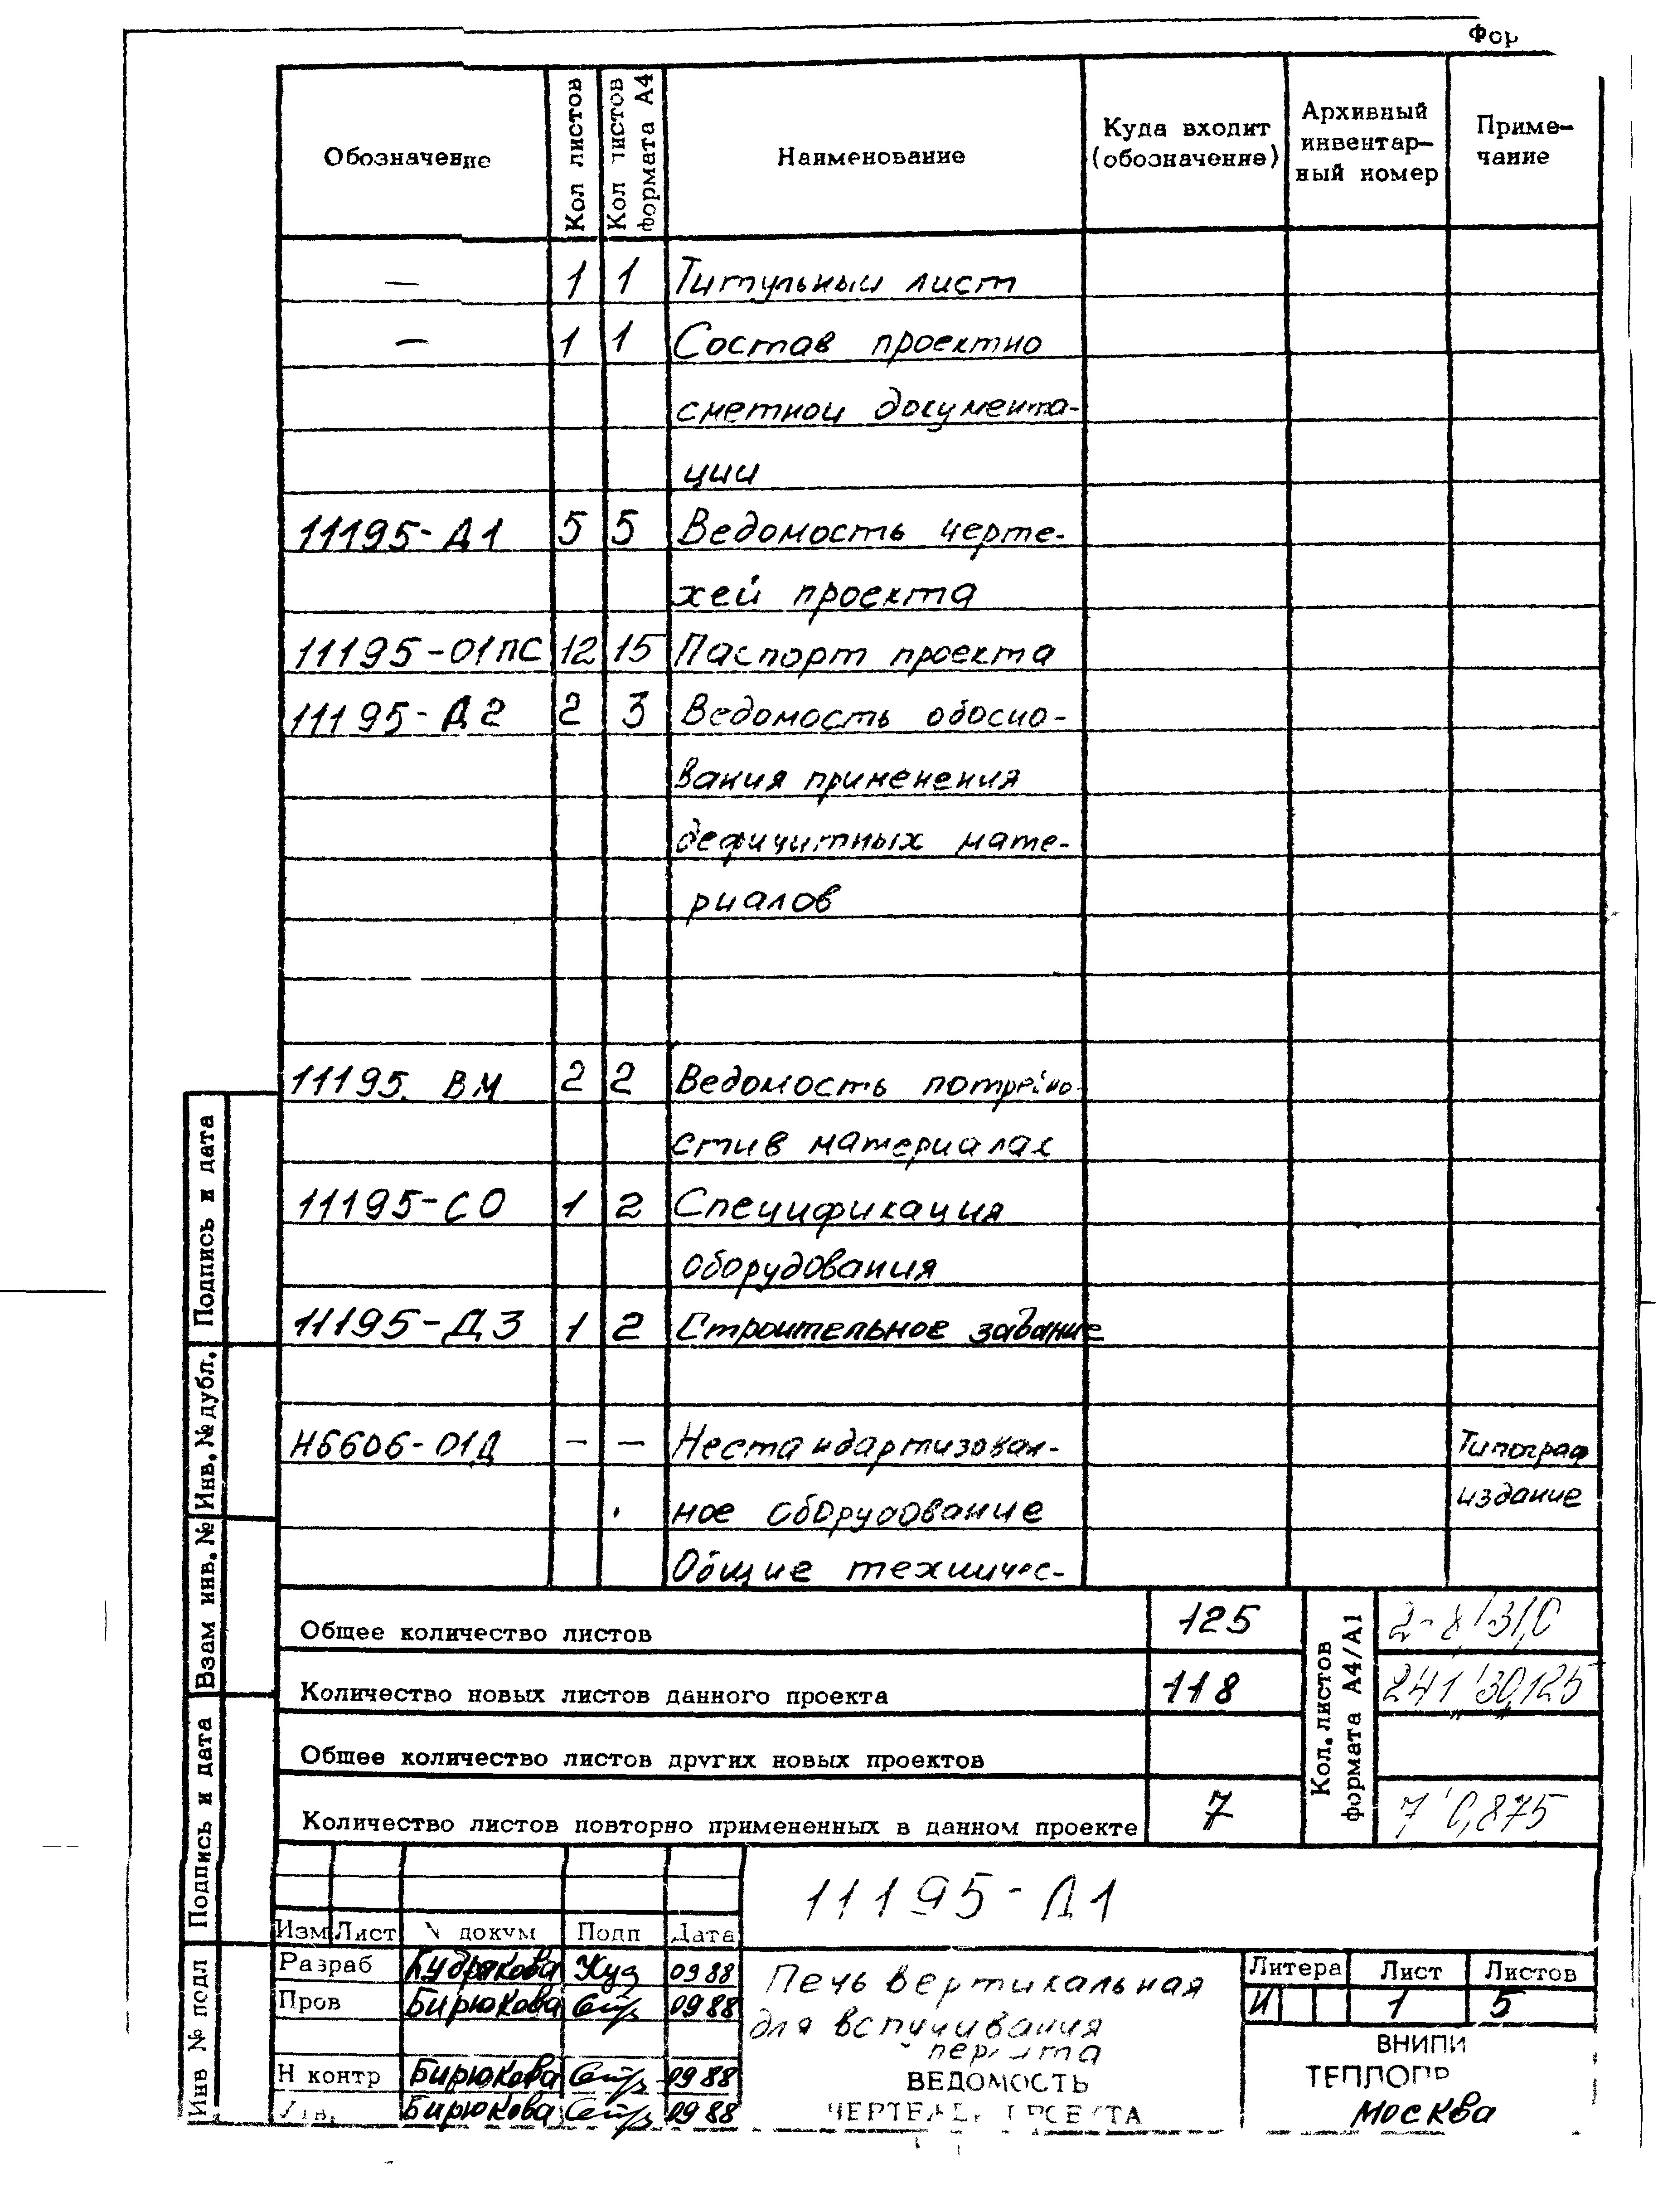 Фор
Обозначение
Кол листов
Кол листов
формата А4
Наименование
Куда входит
(обозначение)
Архивный
инвентар-
ный номер
Приме-
чание
— 1 1 Титульный лист
— 1 1 Состав проектно
сметной документа-
ции
11195-Д1 5 5 Ведомость черте-
жей проекта
11195-01ПС 12 15 Паспорт проекта
11195-Д2 2 3 Ведомость обосно-
вания применения
дефицитных мате-
риалов
11195. ВМ 2 2 Ведомость
сти в материалах
11195-СО 1 2 Спецификация
оборудования
11195-Д3 1 2 Строительное задание
Н6606-01Д — — Нестандартизован- Типограф
ное оборудование издание
Общие техничес-
Общее количество листов 125
Количество новых листов данного проекта 118 241 30,125
Общее количество листов других новых проектов
Количество листов повторно примененных в данном проекте 7 7 0,875
Кол. листов
формата А4/А1
11195-Д1
Изм Лист № докум Подп Дата
Разраб Кудрякова Куд 09 88
Пров Бирюкова 09 88
Н контр Бирюкова 09 88
Утв. Бирюкова 09 88
Печь вертикальная
для вспучивания
перлита
ВЕДОМОСТЬ
ЧЕРТЕЖЕЙ ПРОЕКТА
Литера Лист Листов
И 1 5
ВНИПИ
ТЕПЛОПР
Москва
Подпись и дата
Инв. № дубл.
Взам инв. №
Подпись и дата
Инв № подл